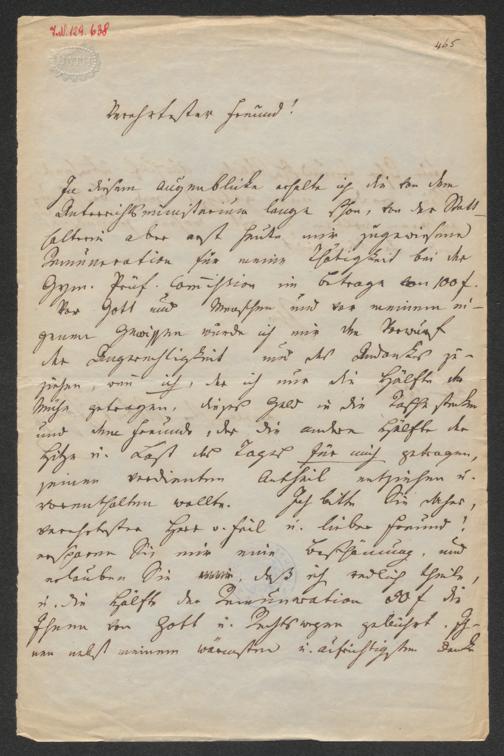 I.N. 129.638
465
Verehrtester Freund!
In diesem Augenblicke erhalte ich die von dem
Unterrichtsministerium lange schon, von der Statt-
halterei aber erst heute mir zugewiesene
Remuneration für meine Thätigkeit bei der
Gym. Prüf. Commission im Betrage von 100 f.
Vor Gott und Menschen und vor meinem ei-
genen Gewissen würde ich mir den Vorwurf
der Ungerechtigkeit und des Undankes zu-
ziehen, wenn ich, der ich nur die Hälfte der
Mühe getragen, dieses Geld in die Tasche stecken
und dem Freunde, der die andere Hälfte der
Hitze u. Last des Tages für mich getragen,
seinen verdienten Antheil entziehen u.
vorenthalten wollte. Ich bitte Sie daher,
verehrtester Herr v. Feil u. lieber Freund!
ersparen Sie mir eine Beschämung, und
erlauben Sie, daß ich redlich theile,
u. die Hälfte der Remuneration 50 f die
Ihnen von Gott u. Rechtswegen gebührt. Ih-
nen nebst meinem wärmsten u. aufrichtigsten Danke